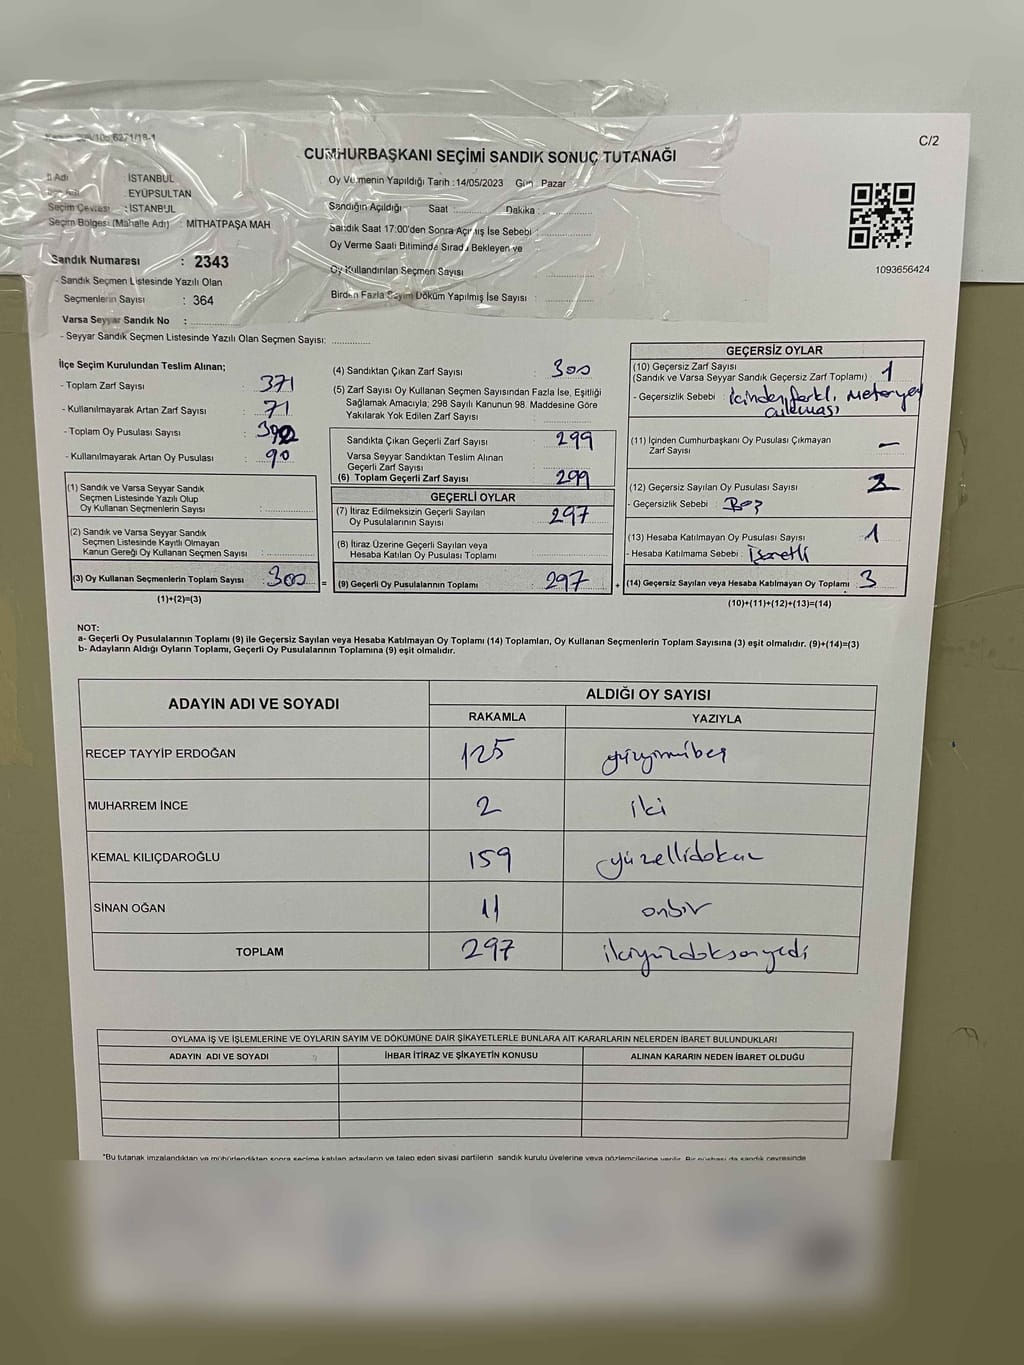 C/2
CUMHURBAŞKANI SEÇİMİ SANDIK SONUÇ TUTANAĞI
İl Adı : İSTANBUL
: EYÜPSULTAN
Seçim Çevresi : İSTANBUL
Seçim Bölgesi (Mahalle Adı) : MİTHATPAŞA MAH
Sandık Numarası : 2343
- Sandık Seçmen Listesinde Yazılı Olan
Seçmenlerin Sayısı : 364
Varsa Seyyar Sandık No :
- Seyyar Sandık Seçmen Listesinde Yazılı Olan Seçmen Sayısı:
Oy Vermenin Yapıldığı Tarih :14/05/2023 Gün Pazar
Sandığın Açıldığı Saat : Dakika :
Sandık Saat 17:00'den Sonra Açılmış İse Sebebi :
Oy Verme Saati Bitiminde Sırada Bekleyen ve
Oy Kullandırılan Seçmen Sayısı
Birden Fazla Sayım Döküm Yapılmış İse Sayısı :
1093656424
İlçe Seçim Kurulundan Teslim Alınan;
- Toplam Zarf Sayısı : 371
- Kullanılmayarak Artan Zarf Sayısı : 71
- Toplam Oy Pusulası Sayısı :
- Kullanılmayarak Artan Oy Pusulası : 90
(1) Sandık ve Varsa Seyyar Sandık
Seçmen Listesinde Yazılı Olup
Oy Kullanan Seçmenlerin Sayısı :
(2) Sandık ve Varsa Seyyar Sandık
Seçmen Listesinde Kayıtlı Olmayan
Kanun Gereği Oy Kullanan Seçmen Sayısı :
(3) Oy Kullanan Seçmenlerin Toplam Sayısı : 300
(1)+(2)=(3)
(4) Sandıktan Çıkan Zarf Sayısı : 300
(5) Zarf Sayısı Oy Kullanan Seçmen Sayısından Fazla İse, Eşitliği
Sağlamak Amacıyla; 298 Sayılı Kanunun 98. Maddesine Göre
Yakılarak Yok Edilen Zarf Sayısı
Sandıkta Çıkan Geçerli Zarf Sayısı : 299
Varsa Seyyar Sandıktan Teslim Alınan
Geçerli Zarf Sayısı :
(6) Toplam Geçerli Zarf Sayısı : 299
GEÇERLİ OYLAR
(7) İtiraz Edilmeksizin Geçerli Sayılan
Oy Pusulalarının Sayısı : 297
(8) İtiraz Üzerine Geçerli Sayılan veya
Hesaba Katılan Oy Pusulası Toplamı :
= (9) Geçerli Oy Pusulalarının Toplamı 297
GEÇERSİZ OYLAR
(10) Geçersiz Zarf Sayısı
(Sandık ve Varsa Seyyar Sandık Geçersiz Zarf Toplamı) : 1
- Geçersizlik Sebebi : içinden farklı materyal
çıkması
(11) İçinden Cumhurbaşkanı Oy Pusulası Çıkmayan
Zarf Sayısı : –
(12) Geçersiz Sayılan Oy Pusulası Sayısı :
- Geçersizlik Sebebi : Boş
(13) Hesaba Katılmayan Oy Pusulası Sayısı : 1
- Hesaba Katılmama Sebebi : işaretli
+ (14) Geçersiz Sayılan veya Hesaba Katılmayan Oy Toplamı : 3
(10)+(11)+(12)+(13)=(14)
NOT:
a- Geçerli Oy Pusulalarının Toplamı (9) ile Geçersiz Sayılan veya Hesaba Katılmayan Oy Toplamı (14) Toplamları, Oy Kullanan Seçmenlerin Toplam Sayısına (3) eşit olmalıdır. (9)+(14)=(3)
b- Adayların Aldığı Oyların Toplamı, Geçerli Oy Pusulalarının Toplamına (9) eşit olmalıdır.
ADAYIN ADI VE SOYADI ALDIĞI OY SAYISI
RAKAMLA YAZIYLA
RECEP TAYYİP ERDOĞAN 125 yüzyirmibeş
MUHARREM İNCE 2 iki
KEMAL KILIÇDAROĞLU 159 yüzellidokuz
SİNAN OĞAN 11 onbir
TOPLAM 297 ikiyüzdoksanyedi
OYLAMA İŞ VE İŞLEMLERİNE VE OYLARIN SAYIM VE DÖKÜMÜNE DAİR ŞİKAYETLERLE BUNLARA AİT KARARLARIN NELERDEN İBARET BULUNDUKLARI
ADAYIN ADI VE SOYADI İHBAR İTİRAZ VE ŞİKAYETİN KONUSU ALINAN KARARIN NEDEN İBARET OLDUĞU
*Bu tutanak imzalandıktan ve mühürlendikten sonra seçime katılan adayların ve talep eden siyasi partilerin sandık kurulu üyelerine veya gözlemcilerine verilir. Bir nüshası da sandık çevresinde